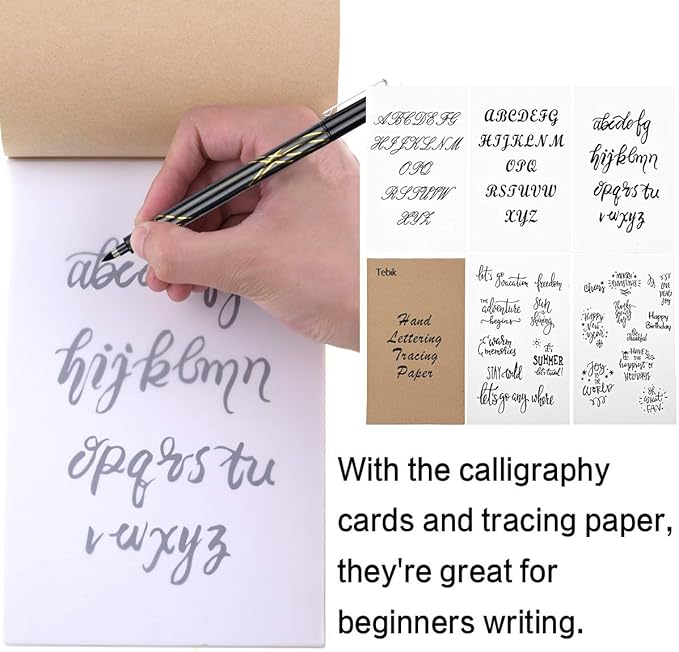 abcdefg
hijklmn
opqrstu
vwxyz
ABCDEFG
HIJKLNM
OPQ
RSTUVW
XYZ
ABCDEFG
HIJKLNM
OPQ
RSTUVW
XYZ
abcdefg
hijklmn
opqrstu
vwxyz
Tebik
Hand
Lettering
Tracing
Paper
let's go vacation
freedom
THE
adventure
begins
Sun is
shining
warm
& memories
it's
SUMMER
let's travel!
STAY wild
let's go any where
cheers
MERRY
Happy
new
year
thank
you
day
Happy
Birthday
be
thankful
Joy
TO THE
WORLD
HAVE THE
happiest
OF
HOLIDAYS
oh
what
FUN
With the calligraphy
cards and tracing paper,
they're great for
beginners writing.